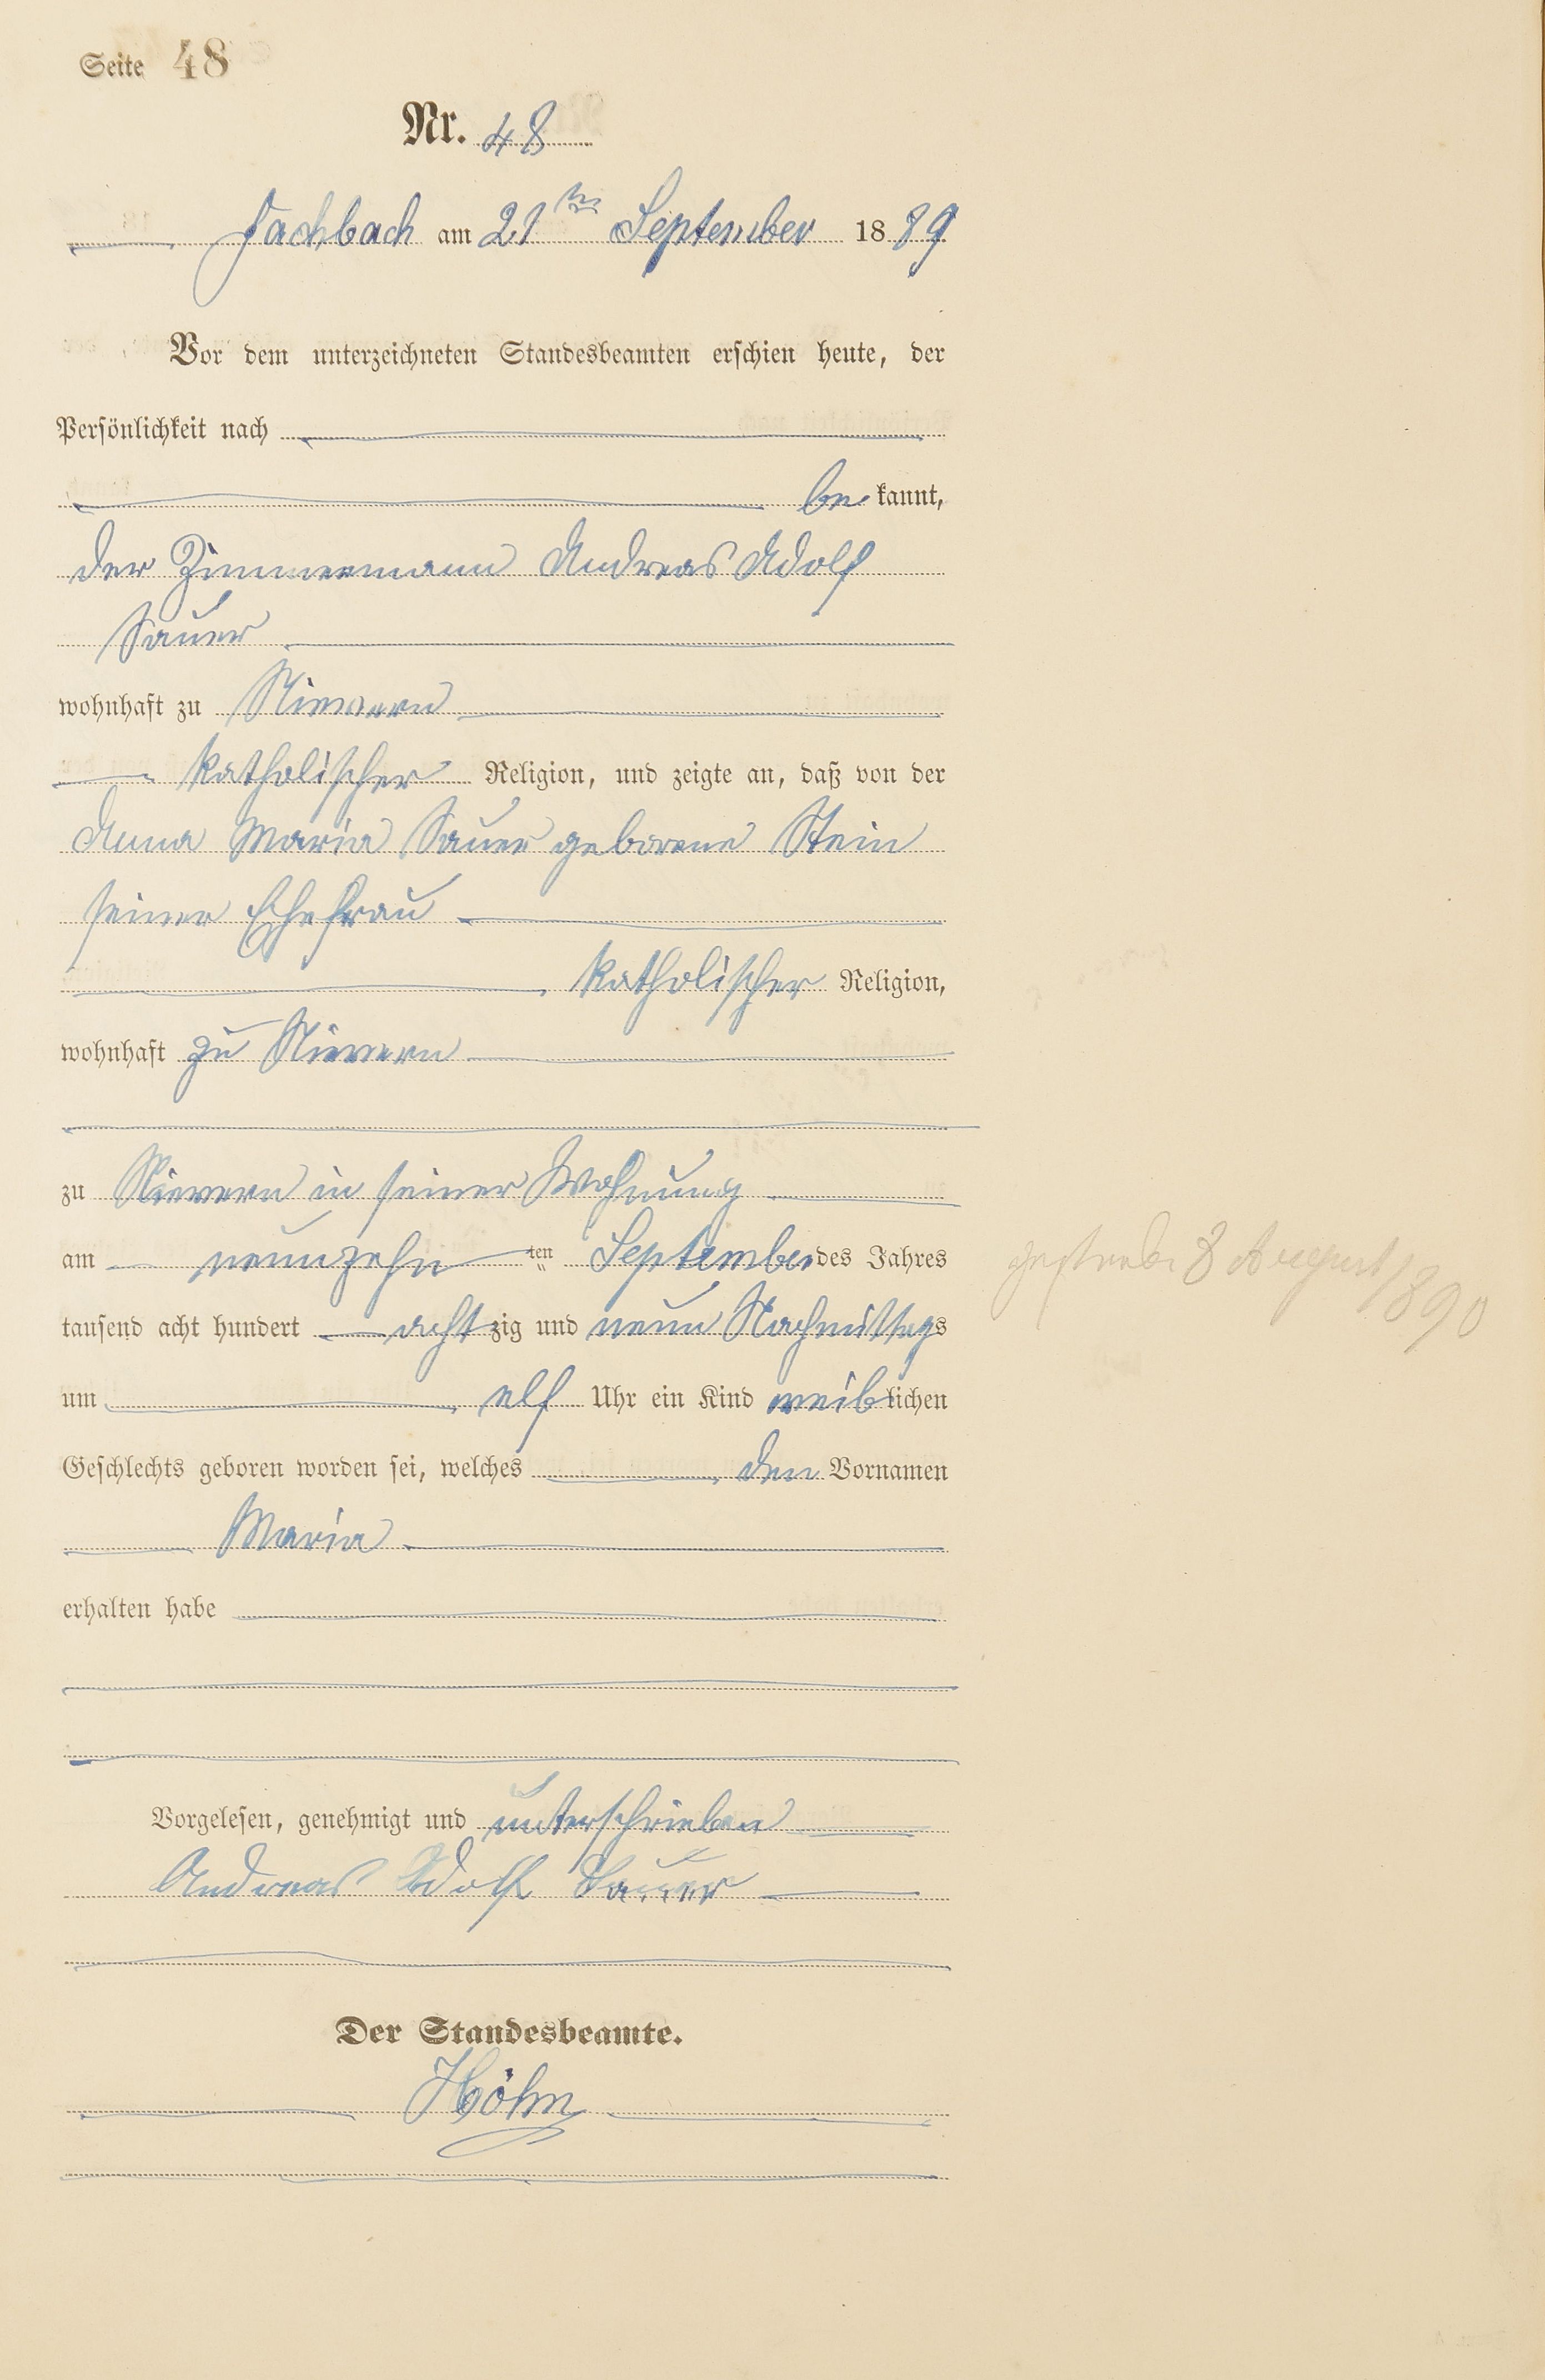 Seite 48
Nr. 48
Fachbach am 21ten September 1889
Vor dem unterzeichneten Standesbeamten erschien heute, der
Persönlichkeit nach
be kannt,
der Zimmermann Andreas Adolf
Sauer
wohnhaft zu Nievern
katholischer Religion, und zeigte an, daß von der
Anna Maria Sauer geborene Stein
seiner Ehefrau
katholischer Religion,
wohnhaft zu Nievern
zu Nievern in seiner Wohnung
am neunzehn ten September des Jahres
tausend acht hundert achtzig und neun Nachmittags
um elf Uhr ein Kind weiblichen
Geschlechts geboren worden sei, welches den Vornamen
Maria
erhalten habe
Vorgelesen, genehmigt und unterschrieben
Andreas Adolf Sauer
Der Standesbeamte.
Höhn
8 August 1890